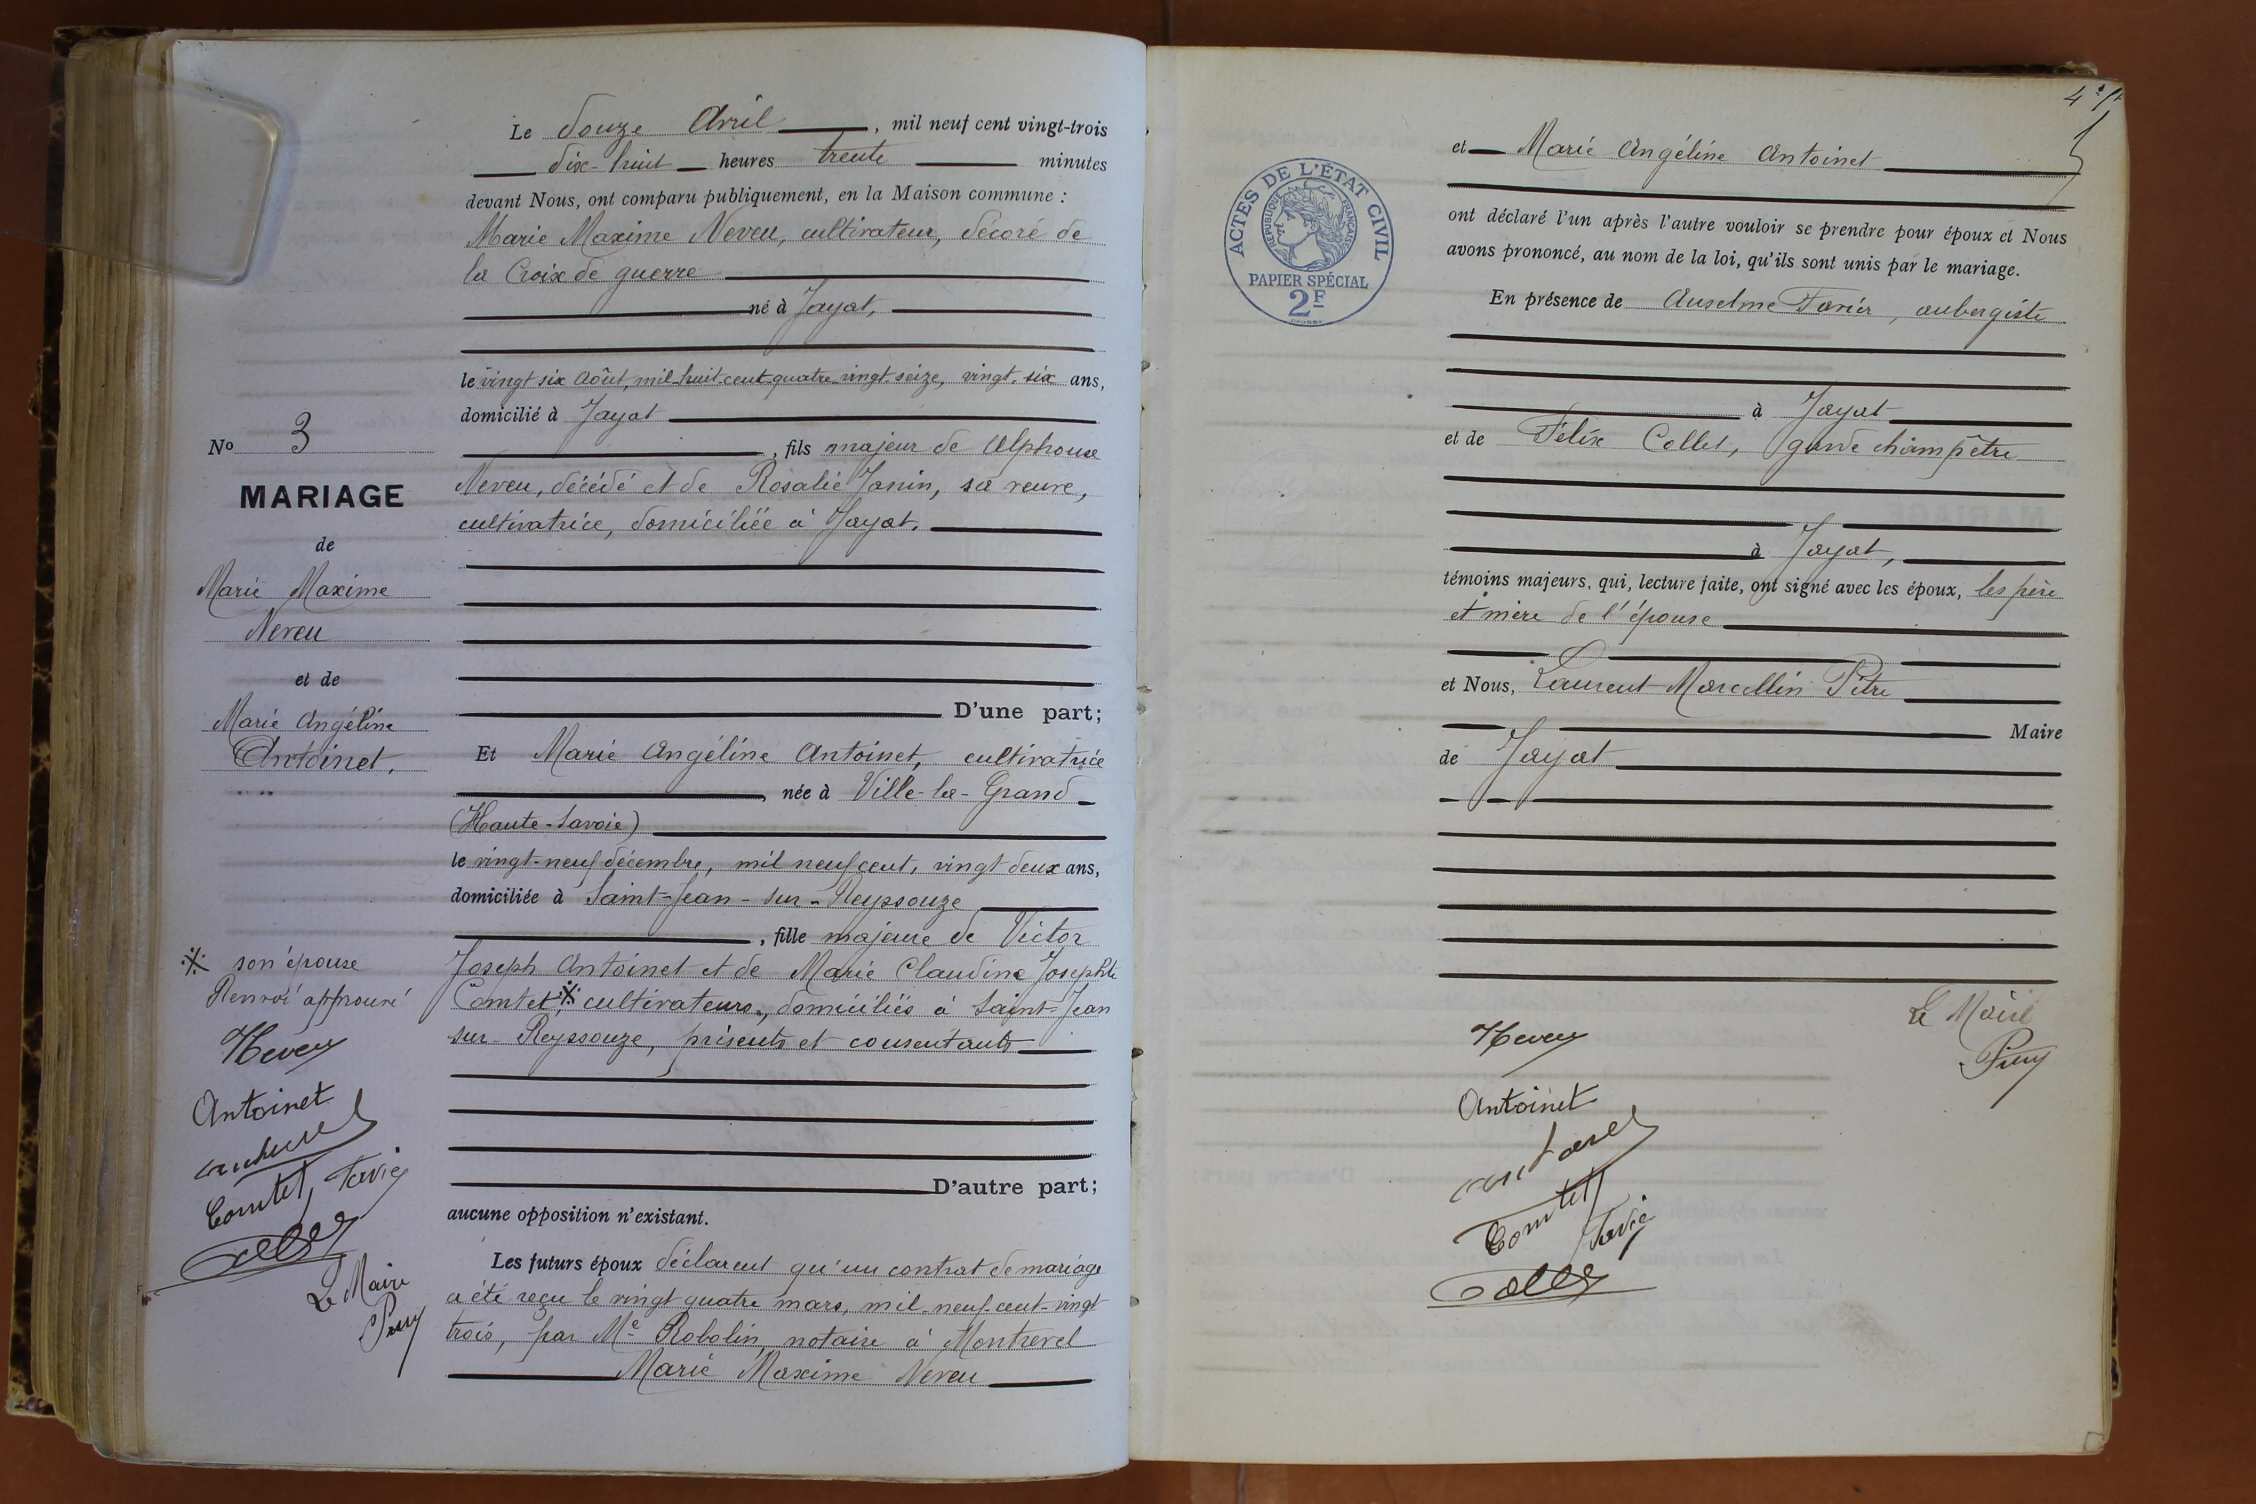 Le douze Avril, mil neuf cent vingt-trois
dix-huit heures trente minutes
devant Nous, ont comparu publiquement, en la Maison commune :
Marie Maxime Neveu, cultivateur, décoré de
la Croix de guerre
né à Jayat,
le vingt six Août, mil huit cent quatre vingt seize, vingt-six ans,
domicilié à Jayat
, fils majeur de Alphonse
Neveu, décédé et de Rosalie Janin, sa veuve,
cultivatrice, domiciliée à Jayat.
D'une part;
Et Marie Angéline Antoinet, cultivatrice
, née à Ville-la-Grand
(Haute-Savoie)
le vingt-neuf décembre, mil neuf cent, vingt deux ans,
domiciliée à Saint-Jean-sur-Reyssouze
, fille majeure de Victor
Joseph Antoinet et de Marie Claudine Josephte
Comtet, ※ cultivateurs, domiciliés à Saint-Jean
sur-Reyssouze, présents et consentants
D'autre part;
aucune opposition n'existant.
Les futurs époux déclarent qu'un contrat de mariage
a été reçu le vingt quatre mars, mil-neuf-cent-vingt
trois, par Me Robolin, notaire à Montrevel
Marie Maxime Neveu
No 3
MARIAGE
de
Marie Maxime
Neveu
et de
Marie Angéline
Antoinet.
※ son épouse
Renvoi approuvé
Neveu
Antoinet
Comtet
Favier
Collet
Le Maire
et Marie Angéline Antoinet
ont déclaré l'un après l'autre vouloir se prendre pour époux et Nous
avons prononcé, au nom de la loi, qu'ils sont unis par le mariage.
ACTES DE L'ÉTAT CIVIL
RÉPUBLIQUE FRANÇAISE
PAPIER SPÉCIAL
2F
En présence de Anselme Favier, aubergiste
à Jayat
et de Félix Collet, garde champêtre
à Jayat,
témoins majeurs, qui, lecture faite, ont signé avec les époux, les père
et mère de l'épouse
et Nous, Laurent Marcellin Pitre
Maire
de Jayat
Le Maire
Neveu
Antoinet
Comtet
Favier
Collet